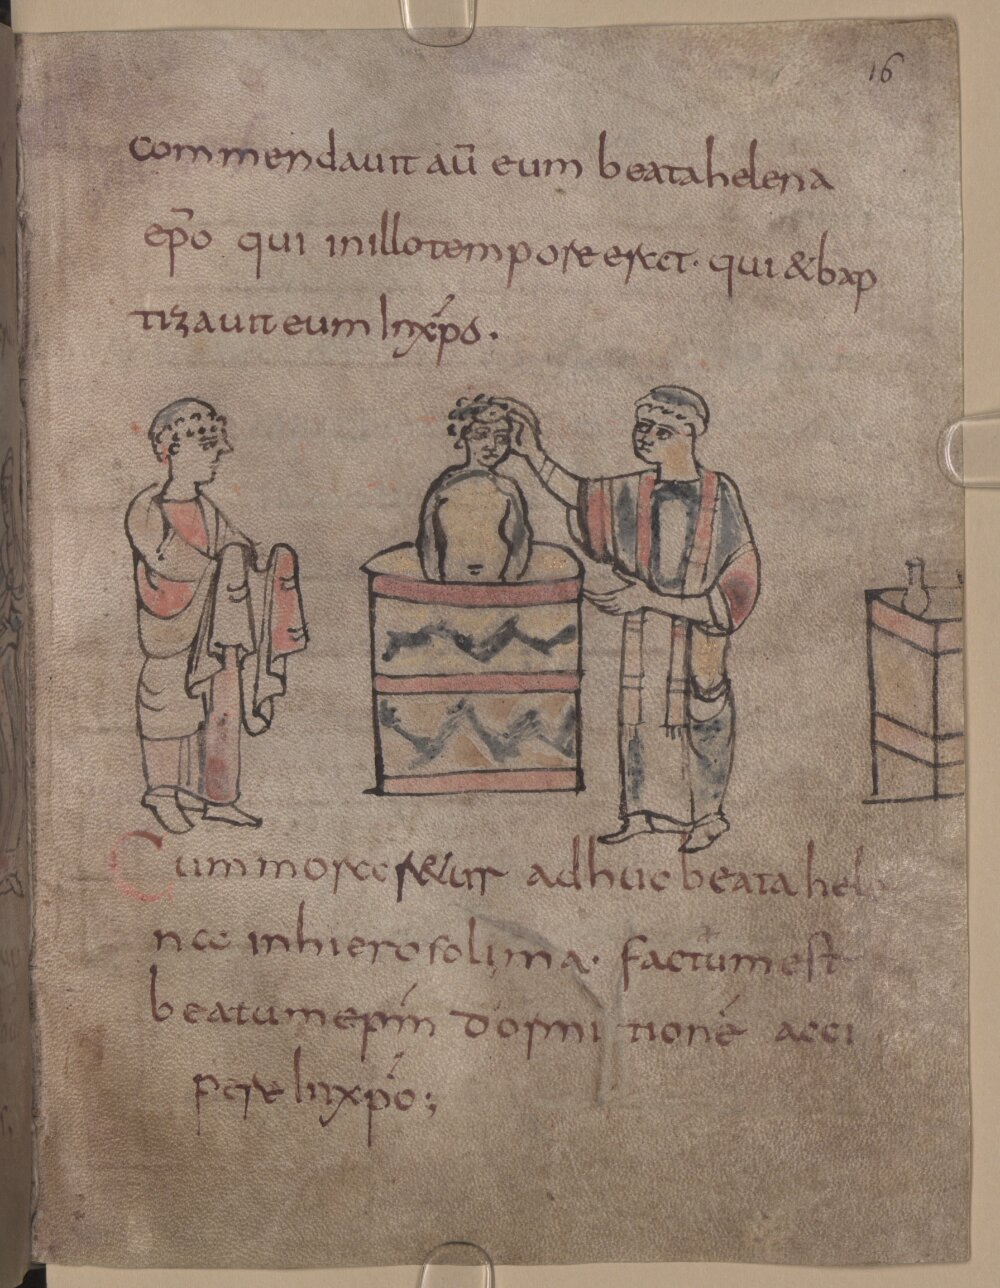 16
commendauit aū eum beata helena
ep̄o qui in illo tempore erat · qui & bap
tizauit eum in xp̄o .
Cum moraretur adhuc beata hele
na in hierosolima · factum est
beatum ep̄m dormitionē acci
pere in xp̄o ;